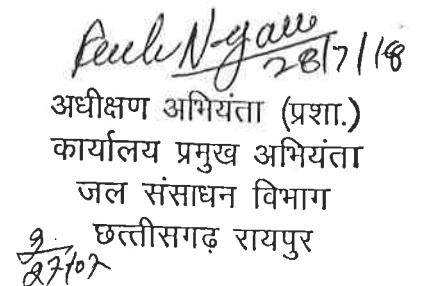 28/7/18
अधीक्षण अभियंता (प्रशा.)
कार्यालय प्रमुख अभियंता
जल संसाधन विभाग
छत्तीसगढ़ रायपुर
27/07